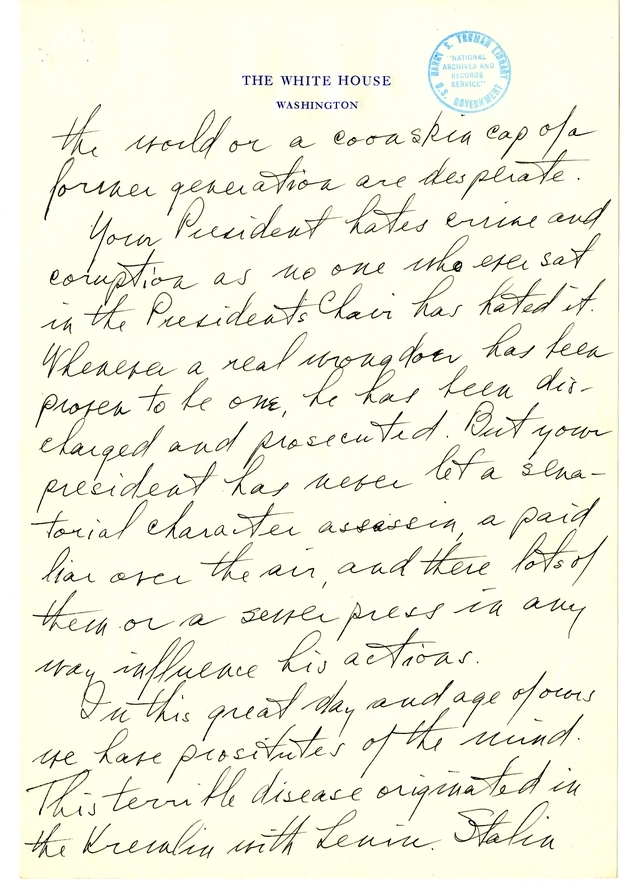 THE WHITE HOUSE
WASHINGTON
HARRY S. TRUMAN LIBRARY
"NATIONAL
ARCHIVES AND
RECORDS
SERVICE"
U.S. GOVERNMENT
the world or a coonskin cap of a
former generation are desperate.
Your President hates crime and
coruption as no one who ever sat
in the Presidents Chair has hated it.
Whenever a real wrongdoer has been
proven to be one, he has been dis-
charged and prosecuted. But your
president has never let a sena-
torial character assassin, a paid
liar over the air, and there lots of
them or a sewer press in any
way influence his actions.
In this great day and age of ours
we have prositutes of the mind.
This terrible disease originated in
the Kremlin with Lenin. Stalin